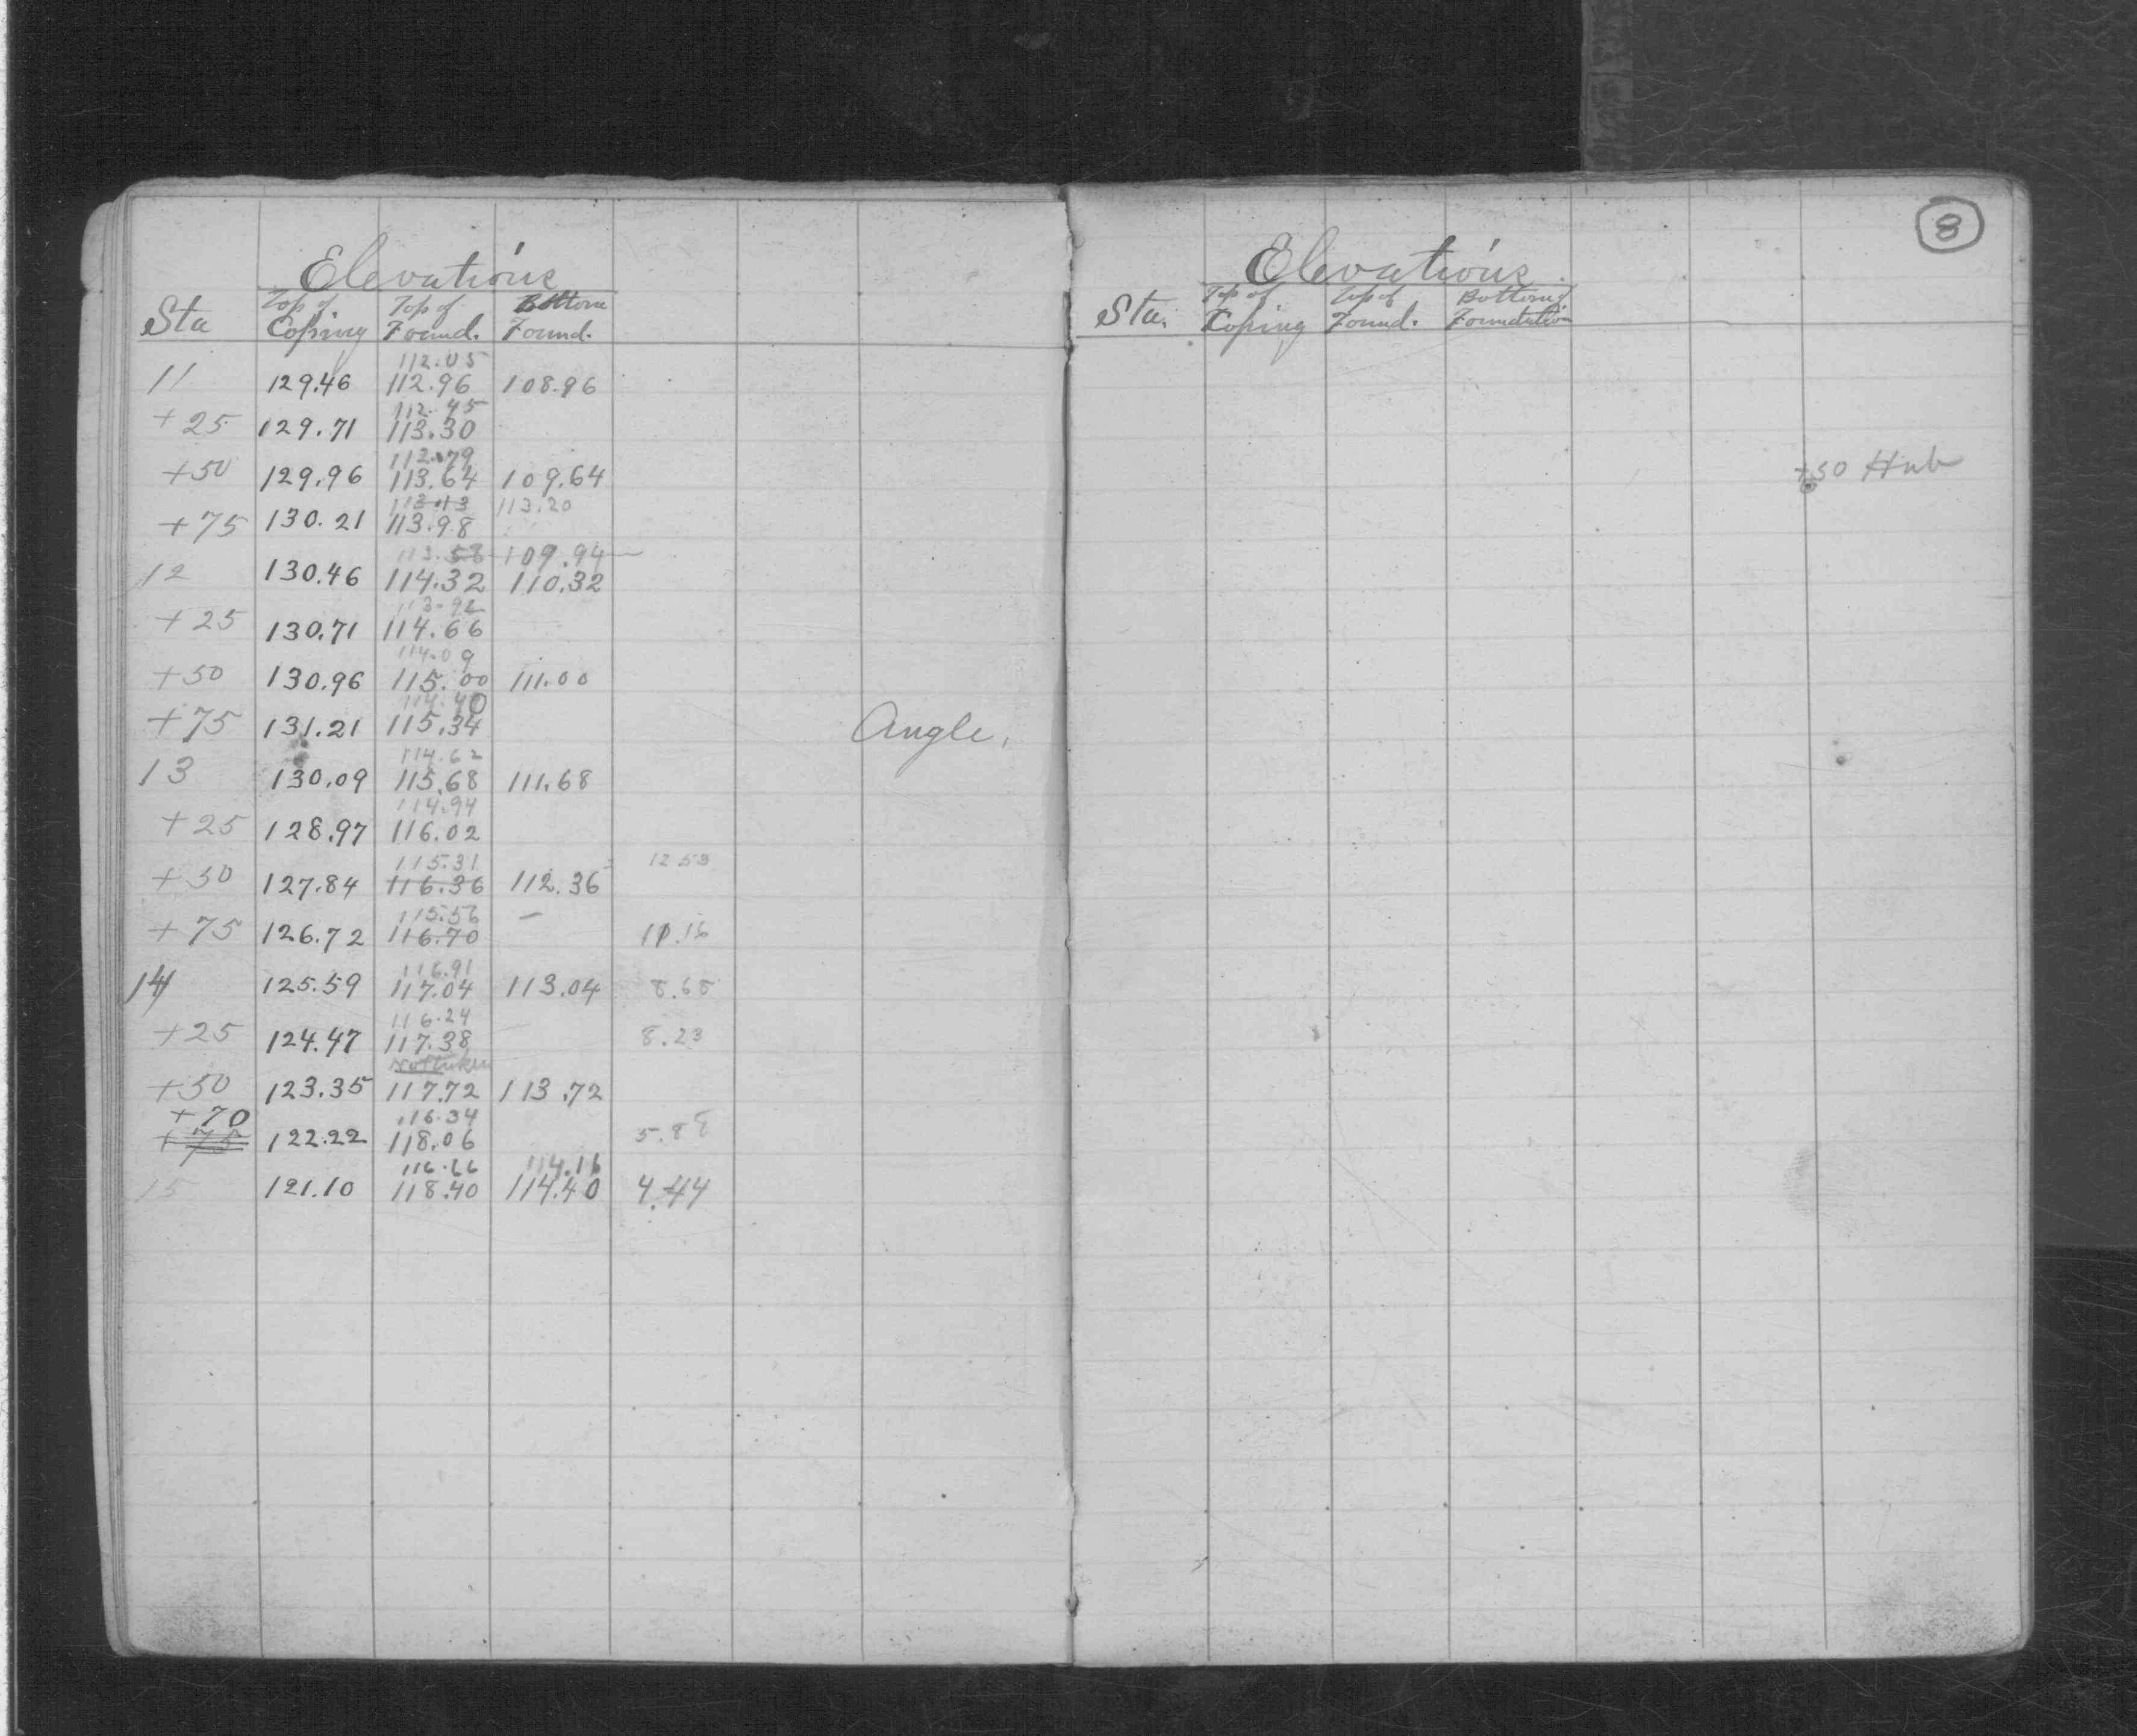 Elevations
Top of Top of Bottom
Sta Coping Found. Found.
112.05
11 129.46 112.96 108.96
112.45
+25 129.71 113.30
112.79
+50 129.96 113.64 109.64
113.13 113.20
+75 130.21 113.98
113.58 109.94
12 130.46 114.32 110.32
113.92
+25 130.71 114.66
114.09
+50 130.96 115.00 111.00
114.40
+75 131.21 115.34 Angle,
114.62
13 130.09 115.68 111.68
114.94
+25 128.97 116.02
115.31 12 53
+50 127.84 116.36 112.36
115.56 –
+75 126.72 116.70 11.16
116.91
14 125.59 117.04 113.04 8.68
116.24
+25 124.47 117.38 8.23
Not taken
+50 123.35 117.72 113.72
+70 116.34
+75 122.22 118.06 5.88
116.66 114.16
15 121.10 118.40 114.40 4.44
8
Elevations
Top of Top of Bottom of
Sta. Coping Found. Foundation
+50 Hub